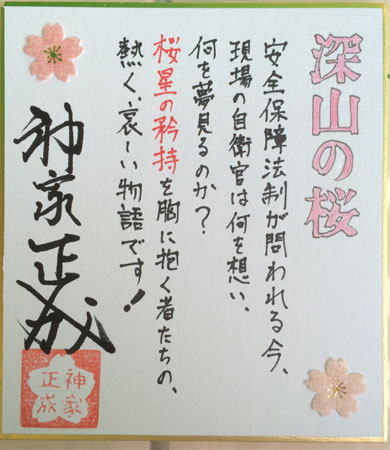 深山の桜
安全保障法制が問われる今、
現場の自衛官は何を想い、
何を夢見るのか？
桜星の矜持を胸に抱く者たちの、
熱く、哀しい物語です！
神家正成
神家
正成